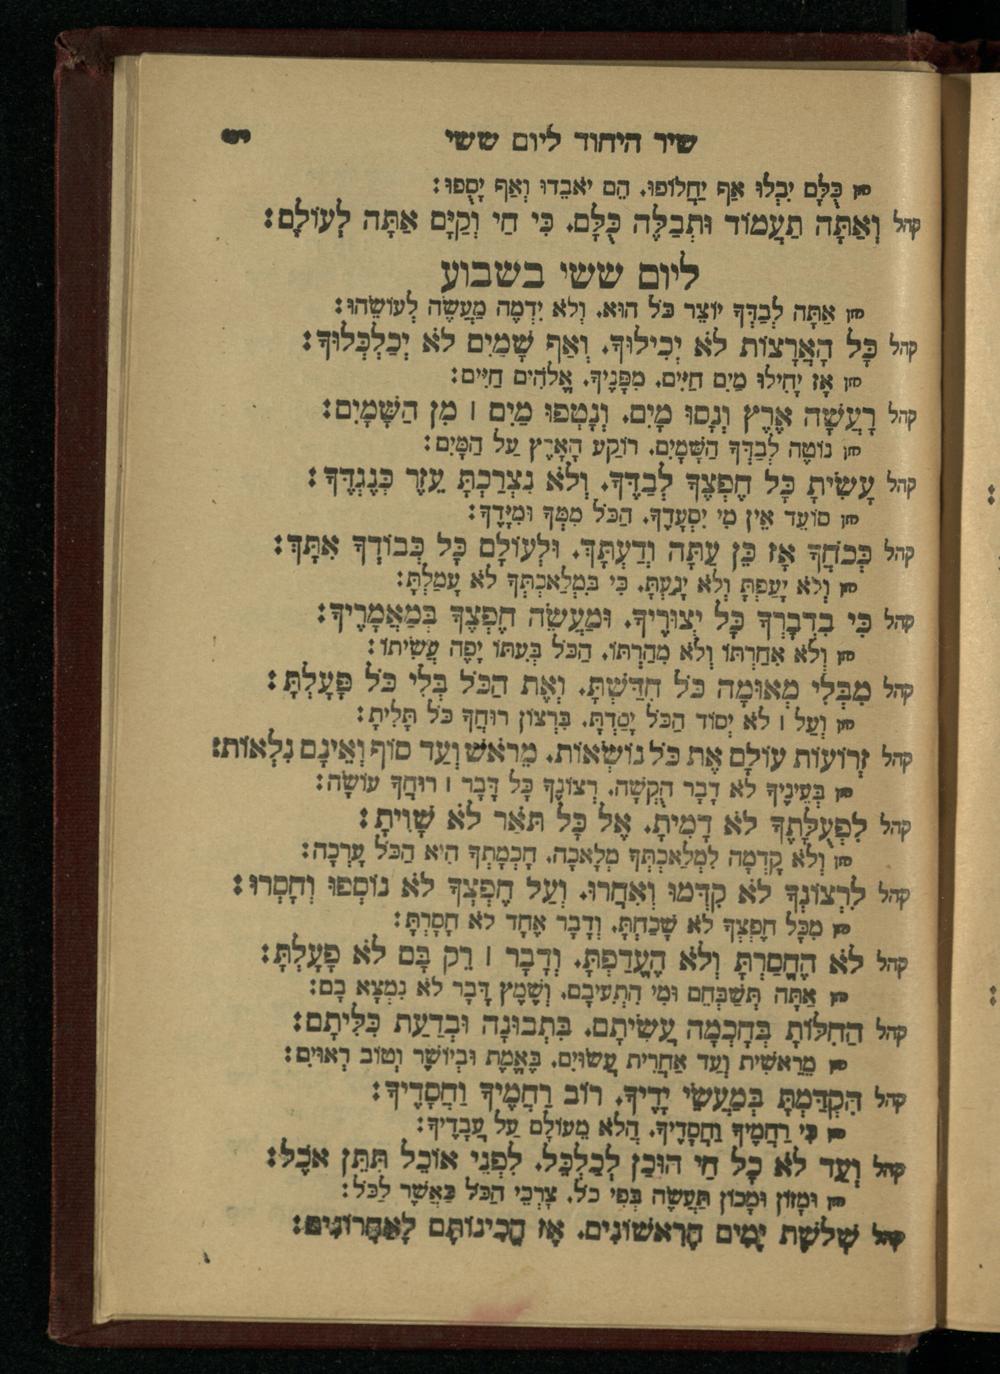 שיר היחוד ליום ששי
חזן כֻּלָּם יִבְלוּ אַף יַחֲלוֹפוּ. הֵם יֹאבֵדוּ וְאַף יָסֻפוּ:
קהל וְאַתָּה תַעֲמוֹד וּתְבַלֶּה כֻּלָּם. כִּי חַי וְקַיָּם אַתָּה לְעוֹלָם:
ליום ששי בשבוע
חזן אַתָּה לְבַדְּךָ יוֹצֵר כֹּל הוּא. וְלֹא יִדְמֶה מַעֲשֶׂה לְעוֹשֵׂהוּ:
קהל כָּל הָאֲרָצוֹת לֹא יְכִילוּךָ. וְאַף שָׁמַיִם לֹא יְכַלְכְּלוּךָ:
חזן אָז יָחִילוּ מַיִם חַיִּים. מִפָּנֶיךָ. אֱלֹהִים חַיִּים:
קהל רָעֲשָׁה אֶרֶץ וְנָסוּ מָיִם. וְנָטְפוּ מַיִם ׀ מִן הַשָּׁמָיִם:
חזן נוֹטֶה לְבַדְּךָ הַשָּׁמָיִם. רוֹקַע הָאָרֶץ עַל הַמָּיִם:
קהל עָשִׂיתָ כָּל חֶפְצְךָ לְבַדֶּךָ. וְלֹא נִצְרַכְתָּ עֵזֶר כְּנֶגְדֶּךָ:
חזן סוֹעֵד אֵין מִי יִסְעָדֶךָ. הַכֹּל מִמְּךָ וּמִיָּדֶךָ:
קהל כְּכֹחֲךָ אָז כֵּן עַתָּה וְדַעְתָּךְ. וּלְעוֹלָם כָּל כְּבוֹדְךָ אִתָּךְ:
חזן וְלֹא יָעַפְתָּ וְלֹא יָגַעְתָּ. כִּי בִמְלַאכְתְּךָ לֹא עָמַלְתָּ:
קהל כִּי בִדְבָרְךָ כָּל יְצוּרֶיךָ. וּמַעֲשֵׂה חֶפְצְךָ בְּמַאֲמָרֶיךָ:
חזן וְלֹא אִחַרְתּוֹ וְלֹא מִהַרְתּוֹ. הַכֹּל בְּעִתּוֹ יָפֶה עָשִׂיתוֹ:
קהל מִבְּלִי מְאוּמָה כֹּל חִדַּשְׁתָּ. וְאֶת הַכֹּל בְּלִי כֹּל פָּעָלְתָּ:
חזן וְעַל ׀ לֹא יְסוֹד הַכֹּל יָסַדְתָּ. בִּרְצוֹן רוּחֲךָ כֹּל תָּלִיתָ:
קהל זְרוֹעוֹת עוֹלָם אֶת כֹּל נוֹשְׂאוֹת. מֵרֹאשׁ וְעַד סוֹף וְאֵינָם נִלְאוֹת:
חזן בְּעֵינֶיךָ לֹא דָבָר הֻקְשָׁה. רְצוֹנְךָ כָּל דָּבָר ׀ רוּחֲךָ עוֹשָׂה:
קהל לִפְעֻלָּתְךָ לֹא דָמִיתָ. אֶל כָּל תֹּאַר לֹא שָׁוִיתָ:
חזן וְלֹא קָדְמָה לִמְלַאכְתְּךָ מְלָאכָה. חָכְמָתְךָ הִיא הַכֹּל עָרְכָה:
קהל לִרְצוֹנְךָ לֹא קִדְּמוּ וְאִחֲרוּ. וְעַל חֶפְצְךָ לֹא נוֹסְפוּ וְחָסֵרוּ:
חזן מִכָּל חֶפְצְךָ לֹא שָׁכַחְתָּ. וְדָבָר אֶחָד לֹא חִסָּרְתָּ:
קהל לֹא הֶחֱסַרְתָּ וְלֹא הֶעֱדַפְתָּ. וְדָבָר ׀ רֵק בָּם לֹא פָעָלְתָּ:
חזן אַתָּה תְּשַׁבְּחֵם וּמִי הִתְעִיבָם. וְשֶׁמֶץ דָּבָר לֹא נִמְצָא בָם:
קהל הַחִלּוֹתָ בְּחָכְמָה עֲשִׂיתָם. בִּתְבוּנָה וּבְדַעַת כִּלִּיתָם:
חזן מֵרֵאשִׁית וְעַד אַחֲרִית עֲשׂוּיִם. בֶּאֱמֶת וּבְיוֹשֶׁר וְטוֹב רְאוּיִם:
קהל הִקְדַּמְתָּ בְּמַעֲשֵׂי יָדֶיךָ. רוֹב רַחֲמֶיךָ וַחֲסָדֶיךָ:
חזן כִּי רַחֲמֶיךָ וַחֲסָדֶיךָ. הֲלֹא מֵעוֹלָם עַל עֲבָדֶיךָ:
קהל וְעַד לֹא כָל חַי הוּכַן לְכַלְכֵּל. לִפְנֵי אוֹכֵל תִּתֵּן אֹכֶל:
חזן וּמָזוֹן וּמָכוֹן תַּעֲשֶׂה בְּפִי כֹל. צָרְכֵי הַכֹּל כַּאֲשֶׁר לַכֹּל:
קהל שְׁלֹשֶׁת יָמִים הָרִאשׁוֹנִים. אָז הֲכִינוֹתָם לָאַחֲרוֹנִים: